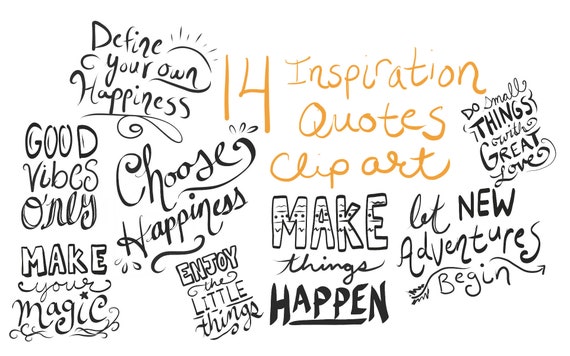 Define
your own
Happiness
14 Inspiration
Quotes
Clip art
Do small
THINGS
with
GREAT
Love
GOOD
Vibes
Only
Choose
Happiness
MAKE
things
HAPPEN
let NEW
Adventures
Begin
MAKE
your
Magic
ENJOY
the
LITTLE
things